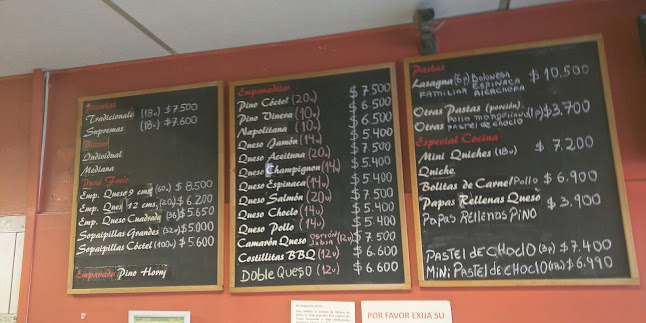 Tradicionale (18u) $7.500
Supremas (18u) $7.600
Pizzas
Individual
Mediana
Para Freir
Emp. Queso 9 cms (60u) $8.500
Emp. Ques 12 cms, (20u) $6.200
Emp. Queso Cuadrada (36) $5.650
Sopaipillas Grandes (32u) $5.000
Sopaipillas Cóctel (100u) $5.600
Empanadas Pino Horno
Empanaditas
Pino Cóctel (20u) $7.500
Pino Vinera (10u) $6.500
Napolitana (10u) $6.500
Queso Jamón (14u) $5.400
Queso Aceituna (20u) $7.500
Queso Champignon (14u) $5.400
Queso Espinaca (14u) $5.400
Queso Salmón (20u) $7.500
Queso Choclo (14u) $5.400
Queso Pollo (14u) $5.400
Camarón Queso (12u) $7.500
Costillitas BBQ (12u) $6.600
Doble Queso (12u) $6.600
Pastas
Lasagna (6p) Bolonesa $10.500
Familiar Espinaca
Alcachofa
Otras Pastas (porción)
Pollo (1p) $3.700
Otras Pastel de choclo
Especial Cocina
Mini Quiches (18u) $7.200
Quiche
Bolitas de Carne/Pollo $6.900
Papas Rellenas Queso $3.900
Papas Rellenas Pino
Pastel de choclo (3p) $7.400
Mini Pastel de choclo $6.990
POR FAVOR EXIJA SU